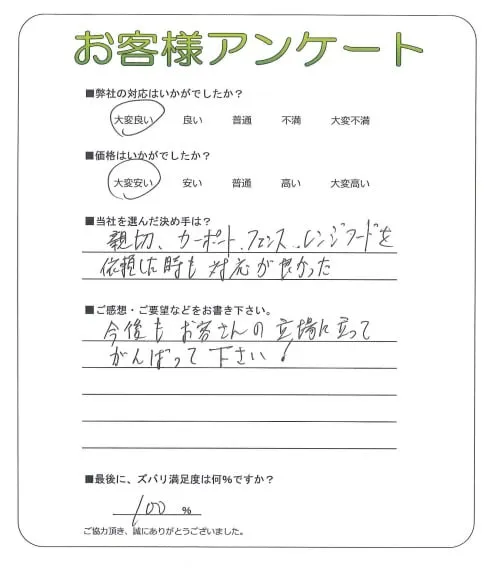 お客様アンケート
■弊社の対応はいかがでしたか？
大変良い 良い 普通 不満 大変不満
■価格はいかがでしたか？
大変安い 安い 普通 高い 大変高い
■当社を選んだ決め手は？
親切、カーポート、フェンス、レンジフードを
依頼した時も対応が良かった
■ご感想・ご要望などをお書き下さい。
今後もお客さんの立場に立って
がんばって下さい！
■最後に、ズバリ満足度は何%ですか？
100 %
ご協力頂き、誠にありがとうございました。